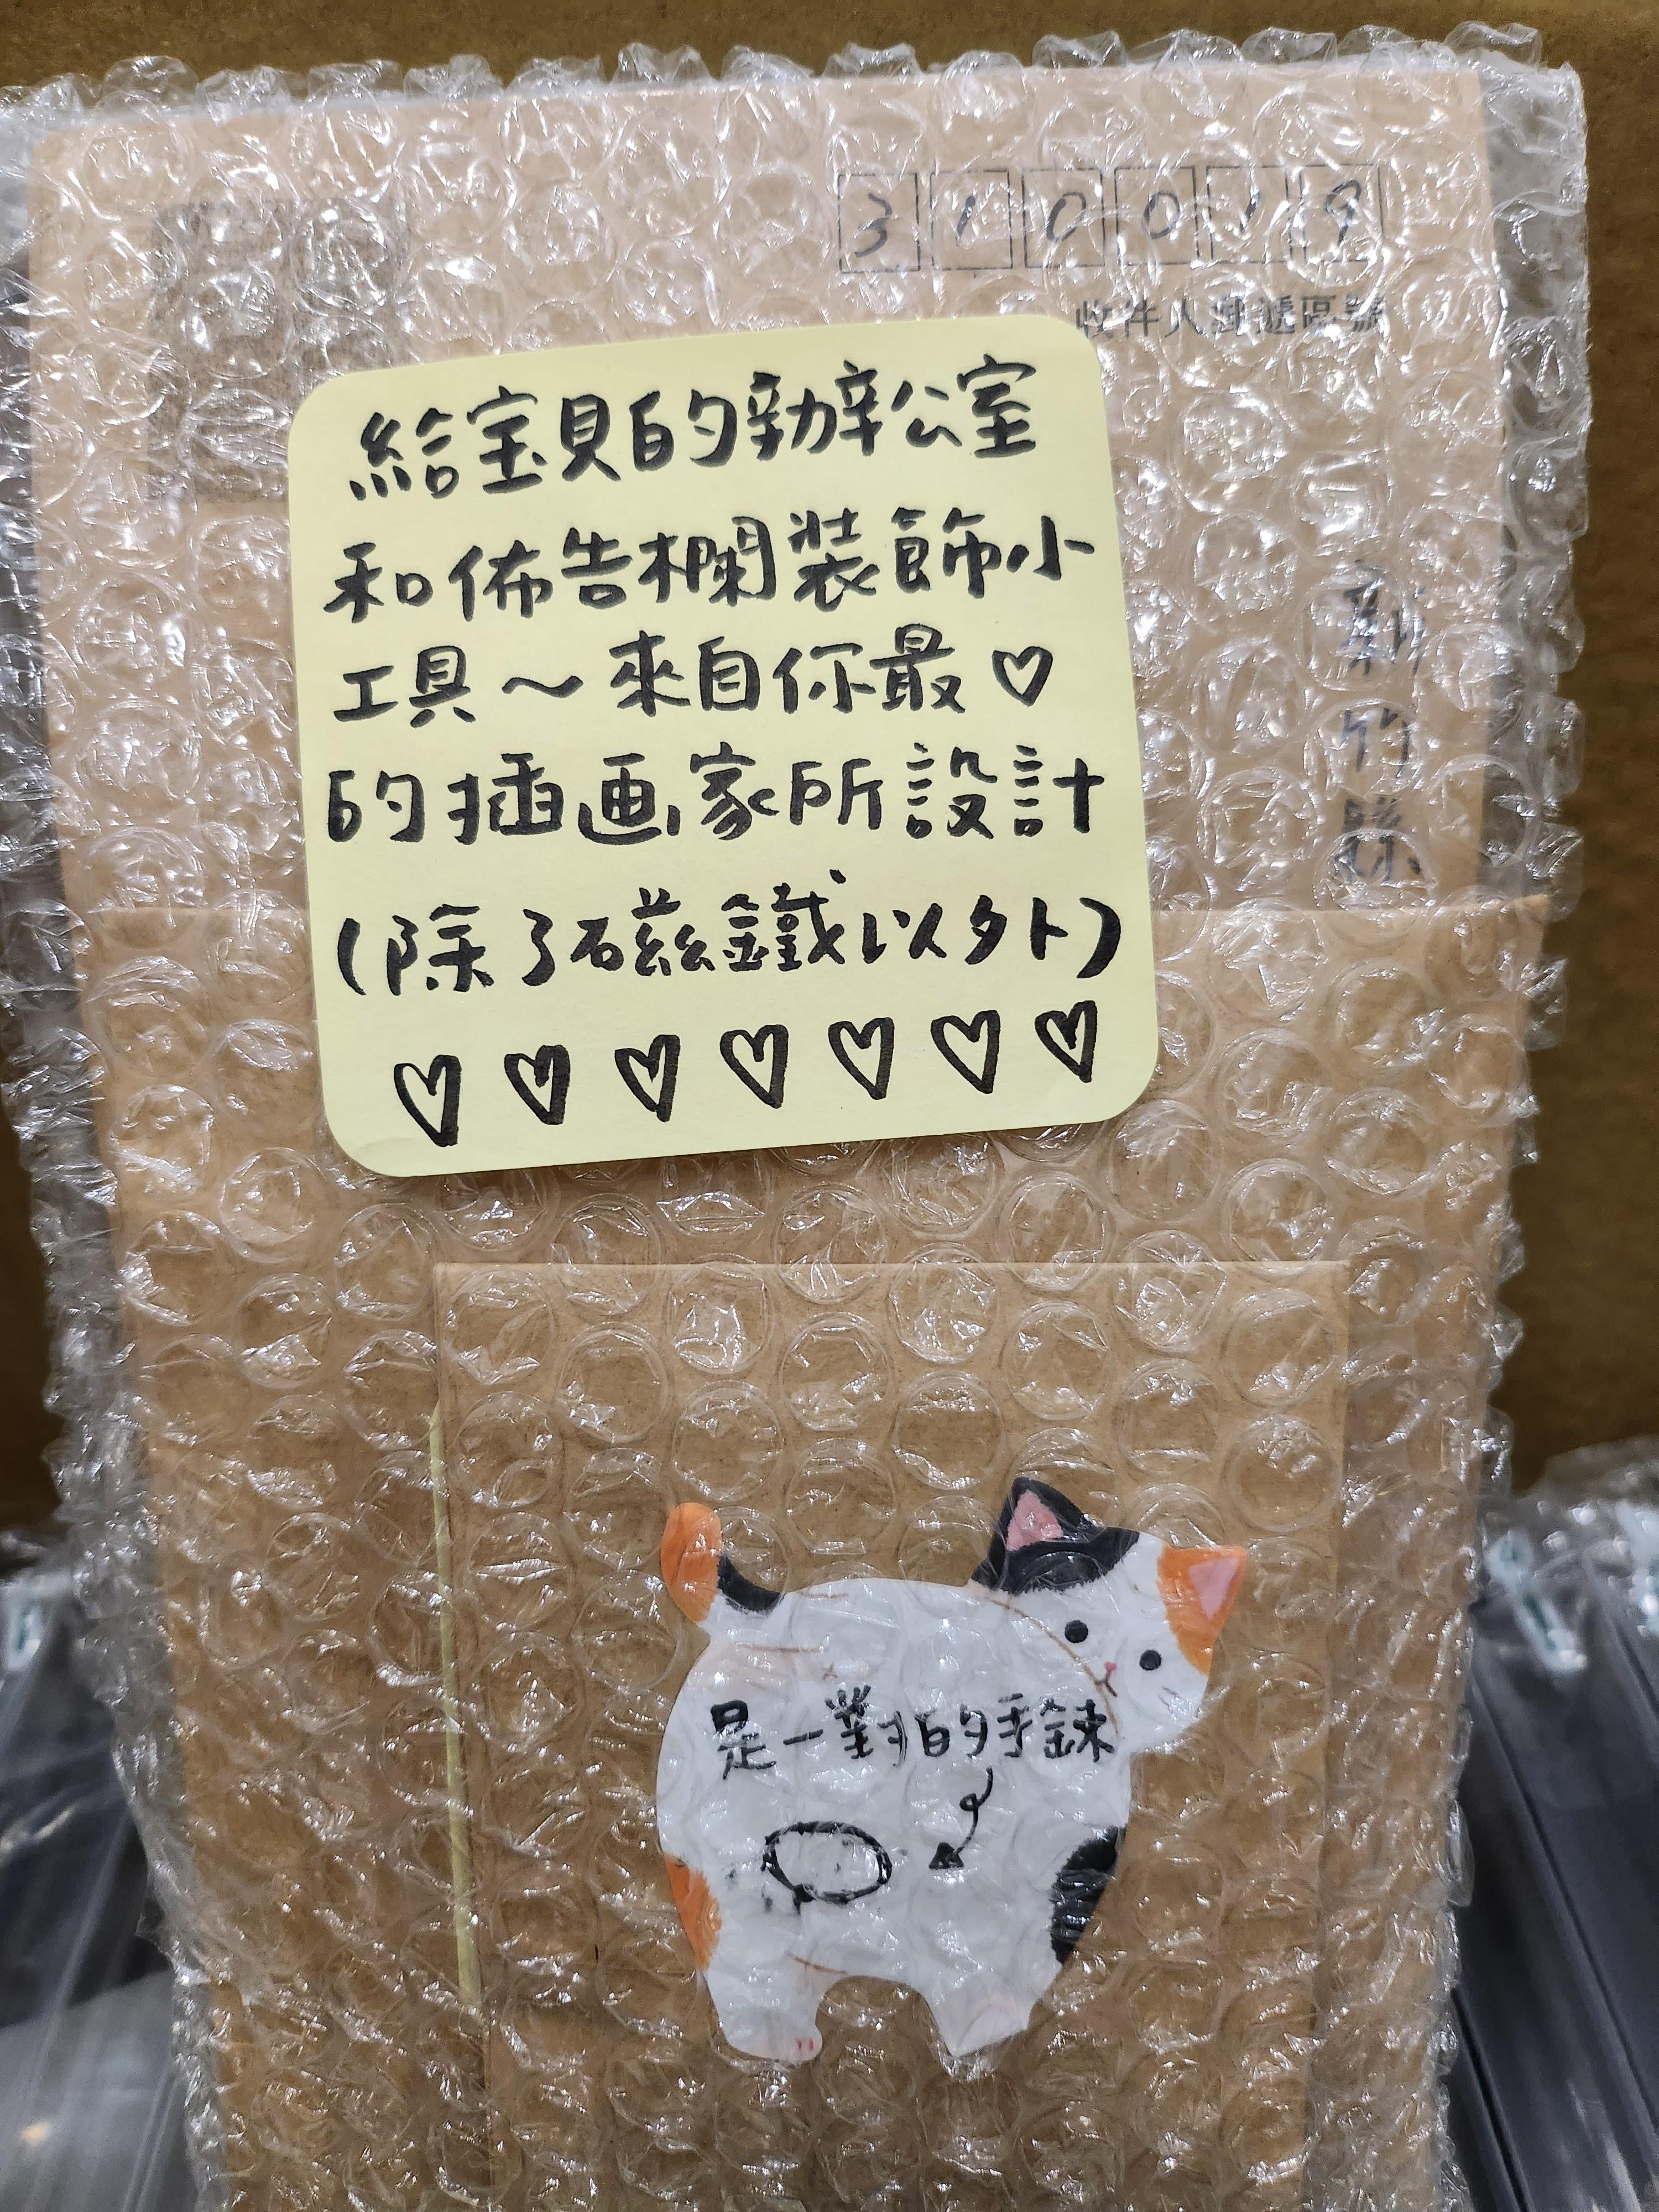 310019
收件人郵遞區號
新竹縣
給宝貝的辦公室
和佈告欄裝飾小
工具～來自你最♡
的插画家所設計
(除了磁鐵以外)
♡♡♡♡♡♡♡
是一對的手鍊